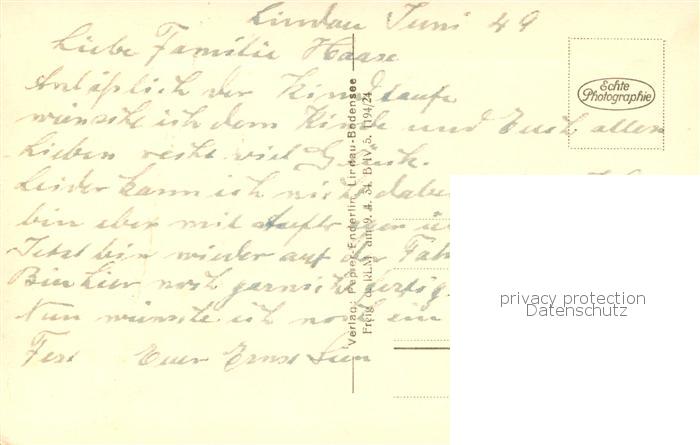 Lindau Juni 49
Liebe Familie Haase
Anläßlich der Kindtaufe
wünsche ich dem Kinde und Euch allen
Lieben recht viel Glück.
Leider kann ich nicht dabei
bin aber mit
Jetzt bin wieder auf der
Bin hier noch garnicht fertig.
Nun wünsche ich noch ein
Fest Euer Ernst
Verlag: Papier-Enderlin, Lindau-Bodensee
Freig. d. RLM am 9. 4. 34. B IV 5. 1194/24
Echte
Photographie
privacy protection
Datenschutz